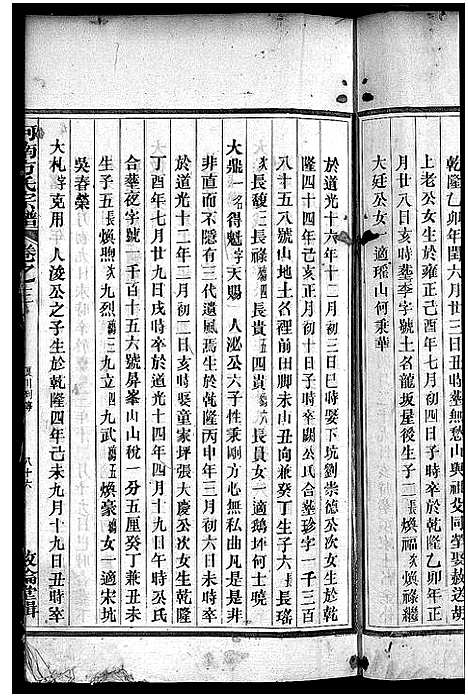 乾隆乙卯年閏六月廿三日丑時塟無愁山與祖父同塋娶赦送胡
上老公女生於雍正己酉年七月初四日子時卒於乾隆乙卯年正
月廿八日亥時塟李字號土名龍坂星後生子二煥祿繼
大廷公女一適瑶山何秉華
於道光十六年十二月初三日巳時娶下坑劉崇德公次女生於乾
隆四十四年己亥正月初十日子時卒闕公氏合塟珍字一千三百
八十五八號山地土名裡前田脚未山丑向兼癸丁生子六長瑤
長馥三長祿四長貴五四貴長員女一適鵝坏何士曉
大鼎一名得魁字天賜一人泌公六子性秉剛方心無私曲凡是是非
非直而不隱有三代遺風焉生於乾隆丙申年三月初六日未時卒
於道光十二年二月初二日時娶童家坪張大慶公次女生乾隆
丁酉年七月廿九日戌時卒於道光十四年四月十九日午時氏
合塟夜字號一千百十五六號屏峯山山稅一分五厘癸丁兼丑未
生子五長煥九烈三九立四九武五煥豪女一適宋坑
吳春榮
大札字克用一人浚公之子生於乾隆四年己未九月十九日丑時卒
河南方氏宗譜
卷之二
八十六
敦倫堂輯